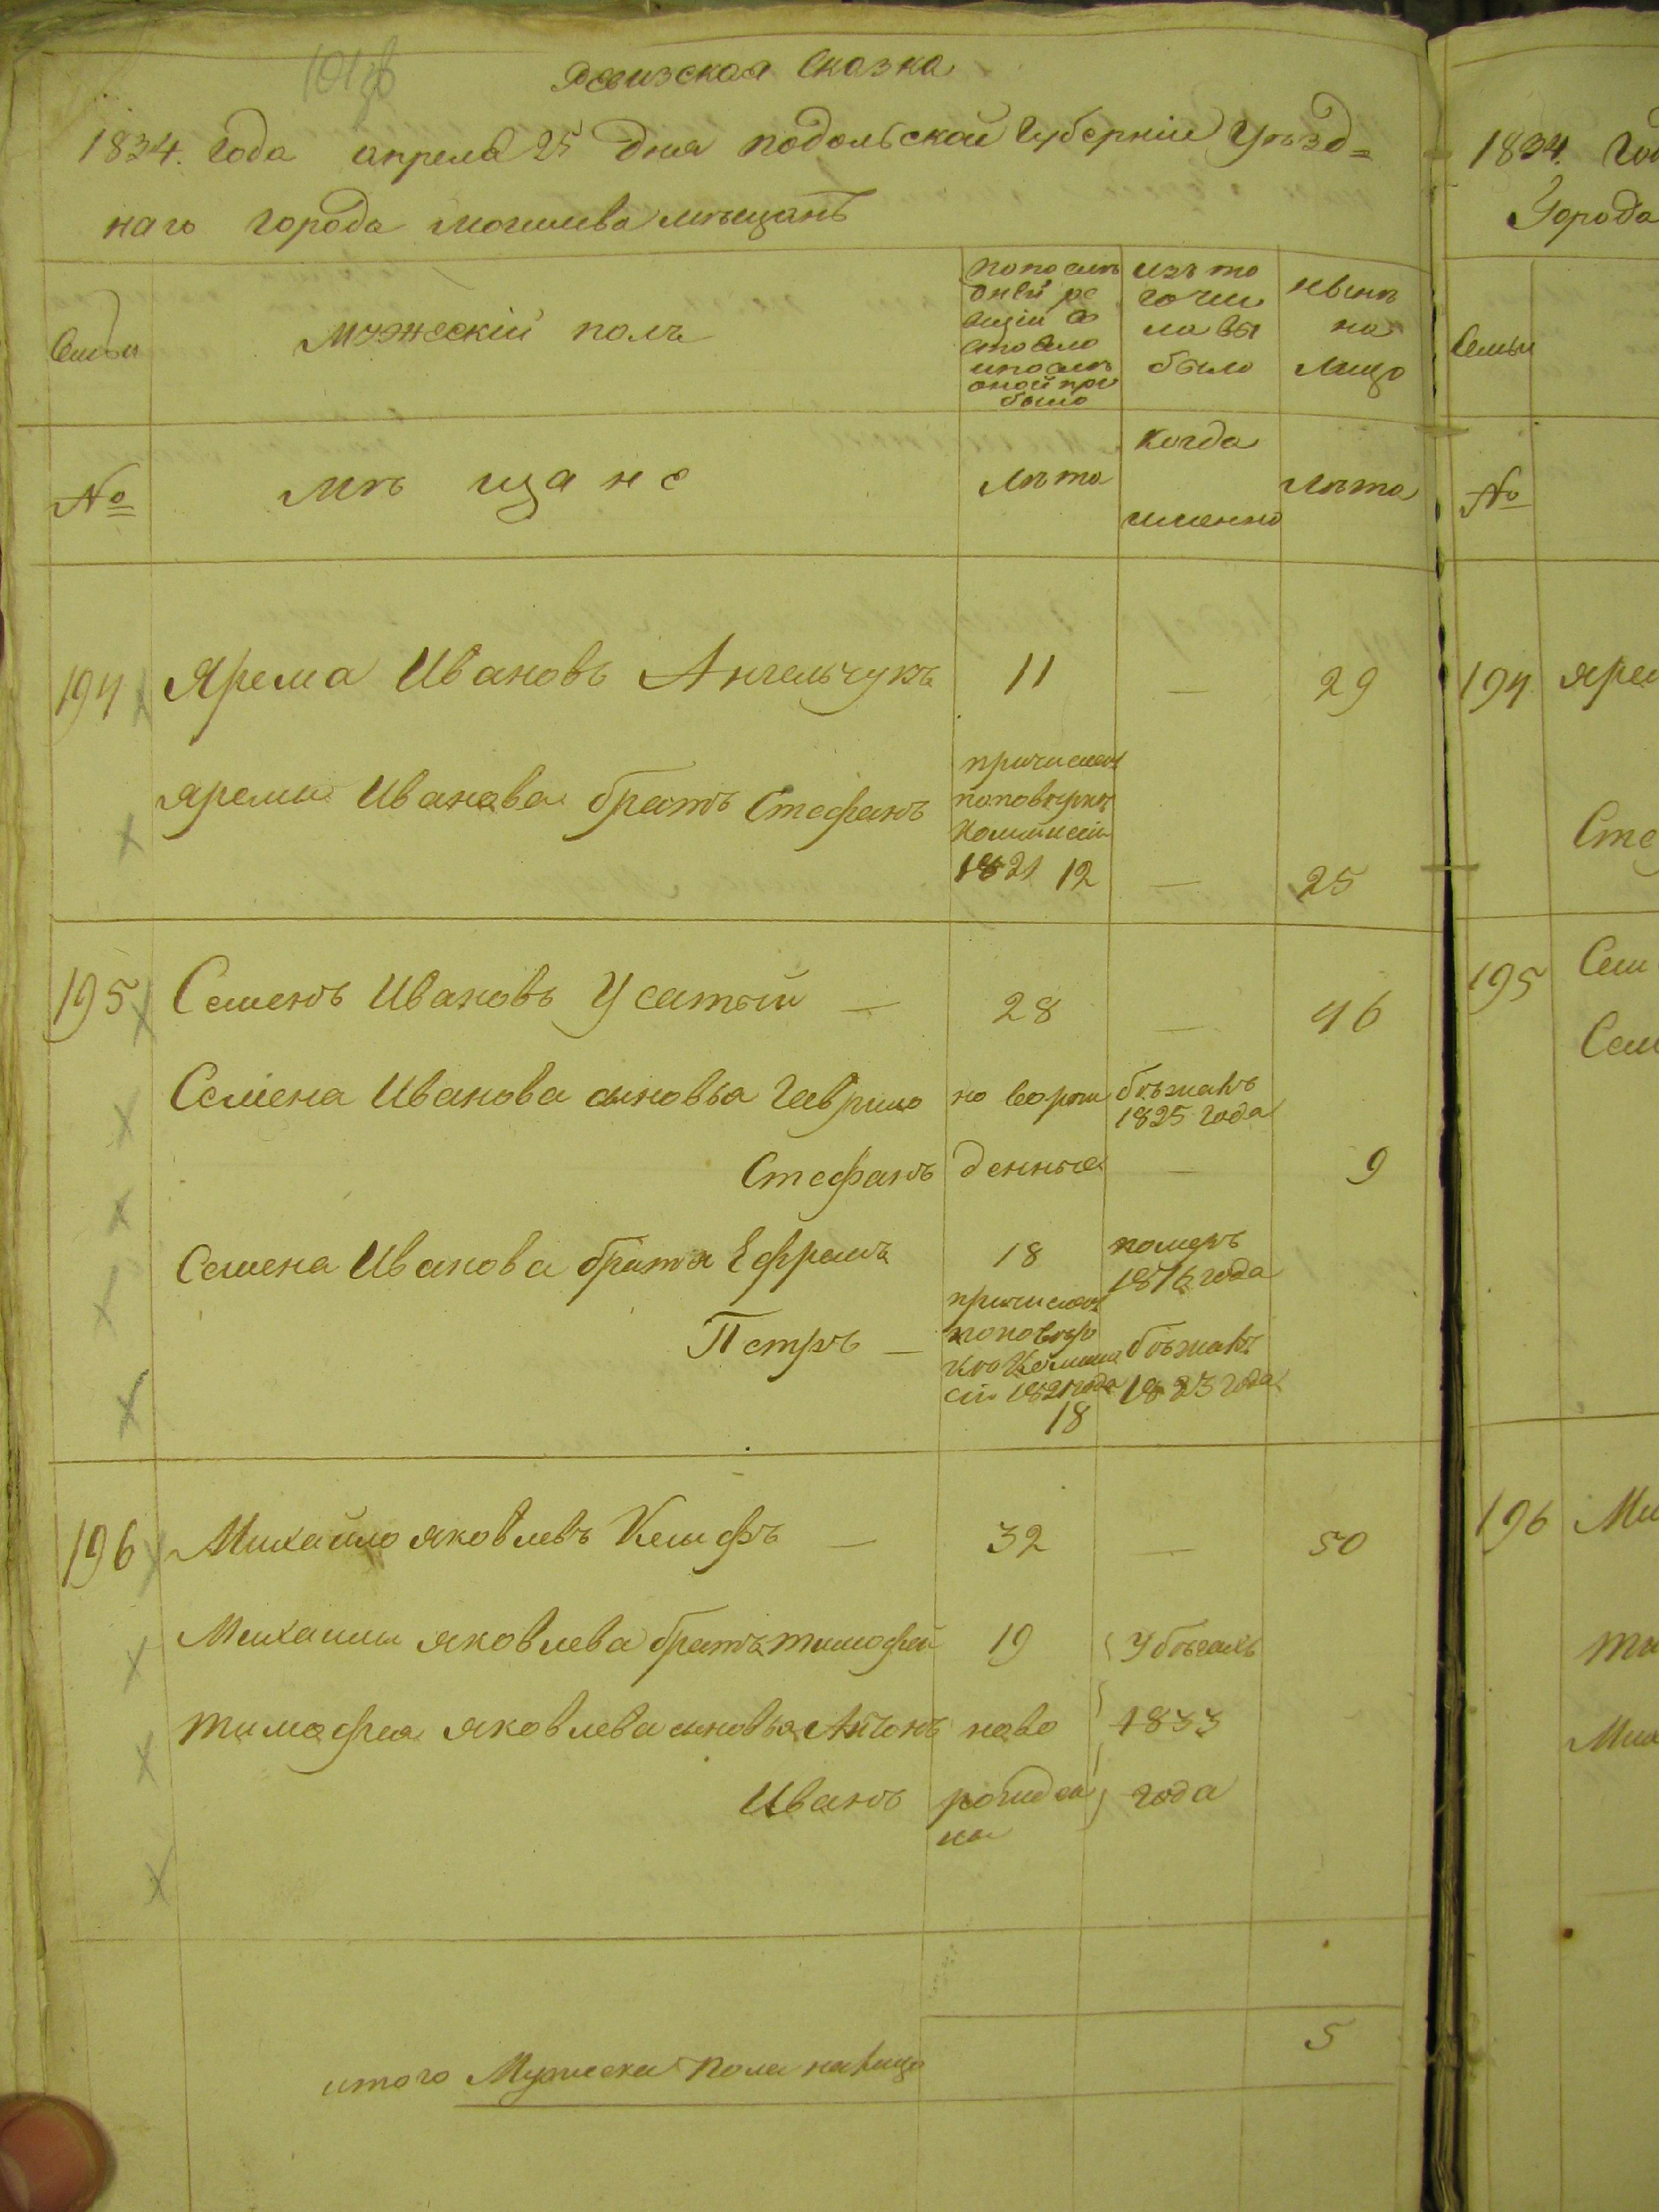 Ревизская Сказка
1834. Года апреля 25 Дня подольской Губерніи Уѣзд=
наго города могилева мѣщанъ
Семьи
мужескій полъ
попослѣ
дней ре
визіи со
стояло
ипослѣ
оной при
было
изъ то
го чис
ла вы
было
нынѣ
на
лицо
№
мѣ ща н е
лѣта
Когда
именно
лѣта
194 Ярема Ивановъ Ангельчукъ 11 — 29
яремы Иванова братъ Стефанъ
причислен
поповѣрке
Коммисіи
1821 12 — 25
195 Семенъ Ивановъ Усатый — 28 — 46
Семена Иванова сыновья Гаврило но ворож бѣжалъ
1825 года
Стефанъ денные — 9
Семена Иванова братья Ефремъ 18 померъ
1816 года
Петръ —
причислен
поповѣр
ке Комми
сіи 1821 года
18
бѣжалъ
1823 года
196 Михайло яковлевъ Кемфъ — 32 — 50
Михайлы яковлева братъ тимофей 19 Убѣгалъ
тимофея яковлева сыновья Антонъ ново 1833
Иванъ рожден года
ны
итого Мужеска Пола налицо 5
1834. Год
Города
Семьи
№
194 яре
Сте
195 Сем
Сем
196 Ми
ти
Ми